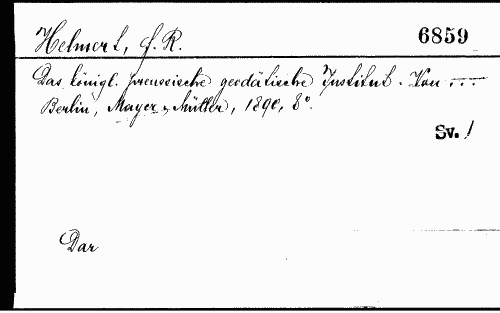 Helmert, F. R.
6859
Das königl. preussische geodätische Institut. Von ...
Berlin, Mayer & Müller, 1890, 8°.
Sv. /
Dar